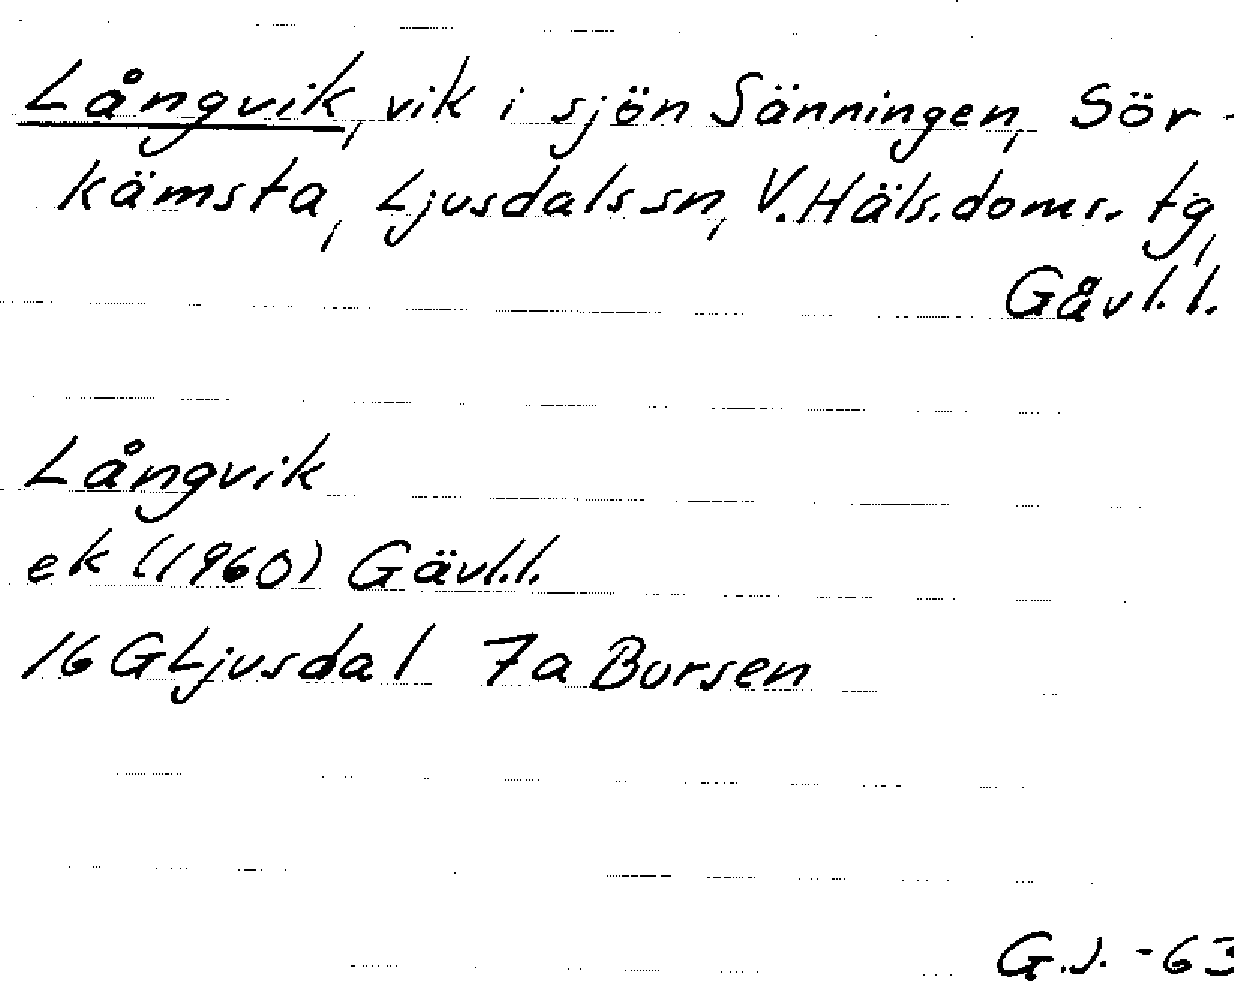 Långvik, vik i sjön Sänningen, Sör-
kämsta, Ljusdals sn, V. Häls. doms. tg,
Gävl. l.
Långvik
ek (1960) Gävl. l.
16 G Ljusdal 7a Bursen
G.J. -63